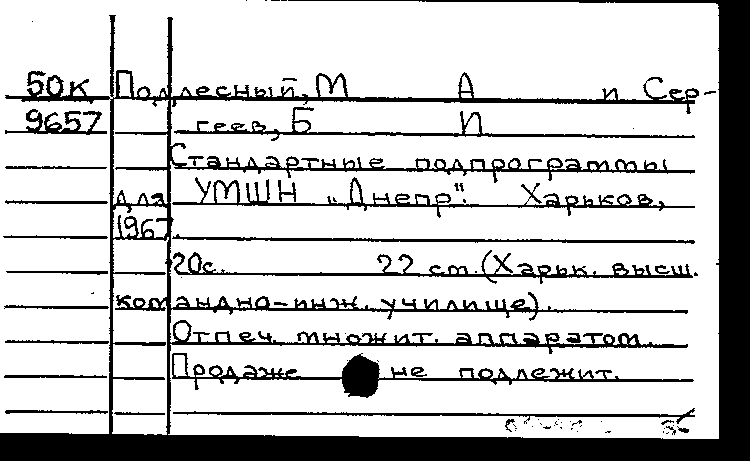 50К Подлесный, М А и Сер-
9657 геев, Б И
Стандартные подпрограммы
для УМШН „Днепр“. Харьков,
1967.
20с. 22 см. (Харьк. высш.
командно-инж. училище).
Отпеч. множит. аппаратом.
Продаже не подлежит.